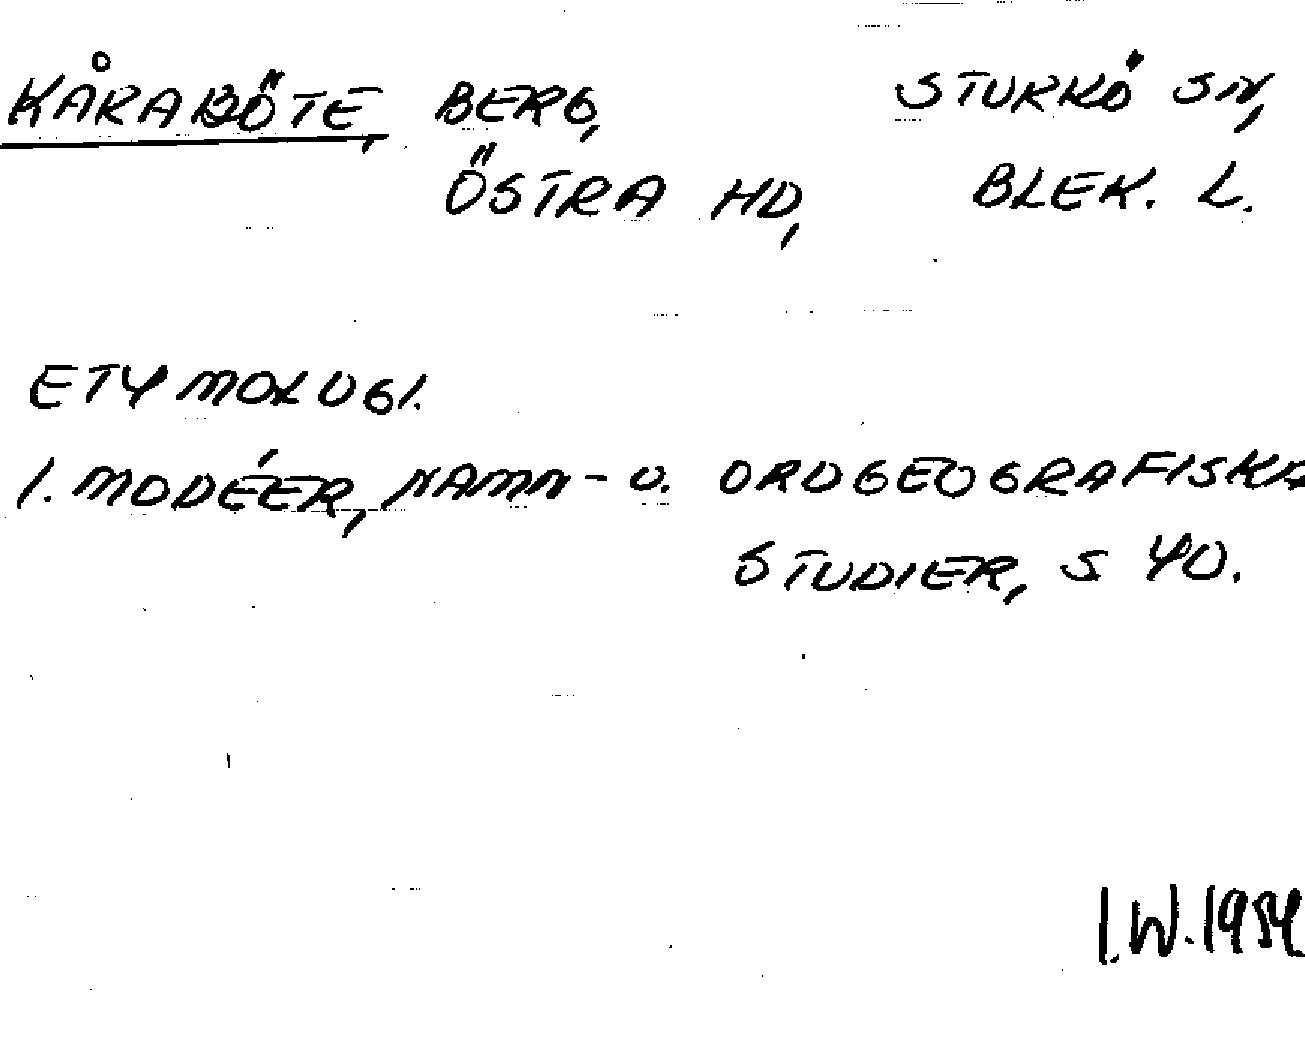 KÅRABÖTE, BERG, STURKÖ SN,
ÖSTRA HD, BLEK. L.
ETYMOLOGI.
I. MODÉER, NAMN- O. ORDGEOGRAFISKA
STUDIER, S 40.
I.W. 1954